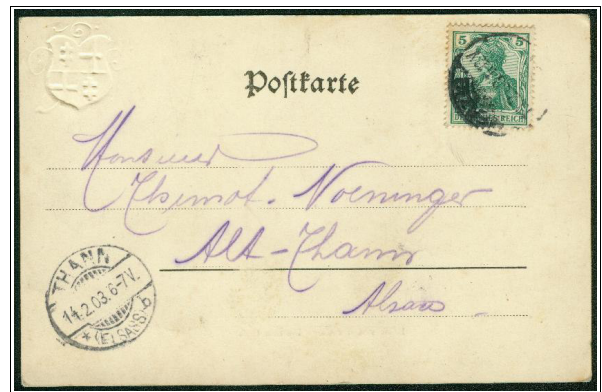 Postkarte
5 5
REICH
Monsieur
Thimot. Noeninger
Alt-Thann
Alsace
THANN
14.2.03.6-7V.
* (ELSASS) b